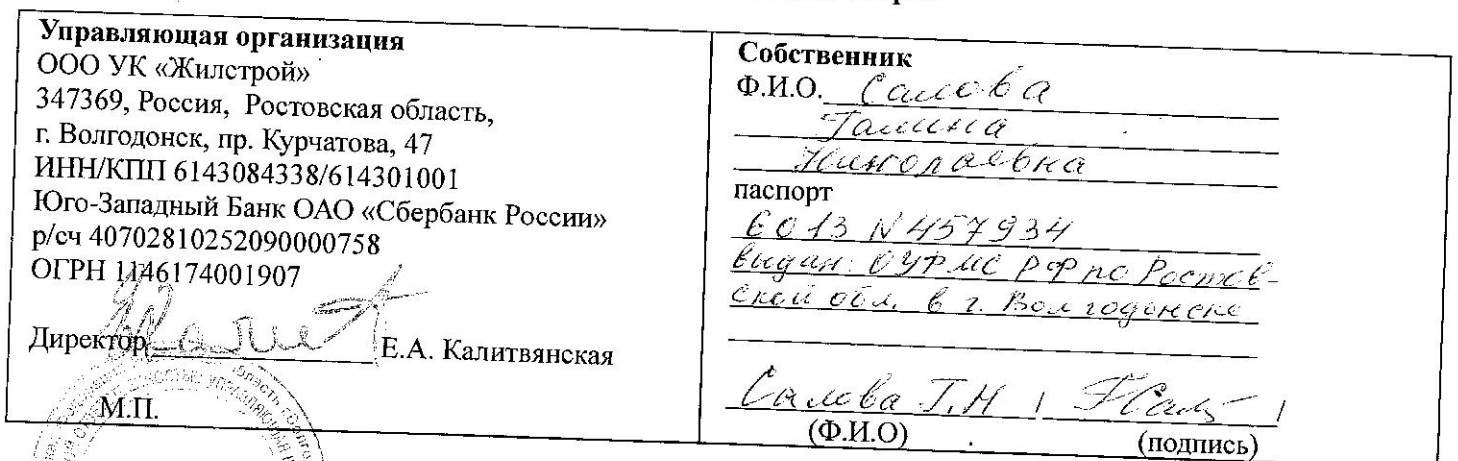 Управляющая организация
ООО УК «Жилстрой»
347369, Россия, Ростовская область,
г. Волгодонск, пр. Курчатова, 47
ИНН/КПП 6143084338/614301001
Юго-Западный Банк ОАО «Сбербанк России»
р/сч 40702810252090000758
ОГРН 1146174001907
Директор Е.А. Калитвянская
М.П.
Собственник
Ф.И.О. Салова
Галина
Николаевна
паспорт
6013 N 457934
выдан: ОУФМС РФ по Ростов-
ской обл. в г. Волгодонске
Салова Г.Н / /
(Ф.И.О) (подпись)